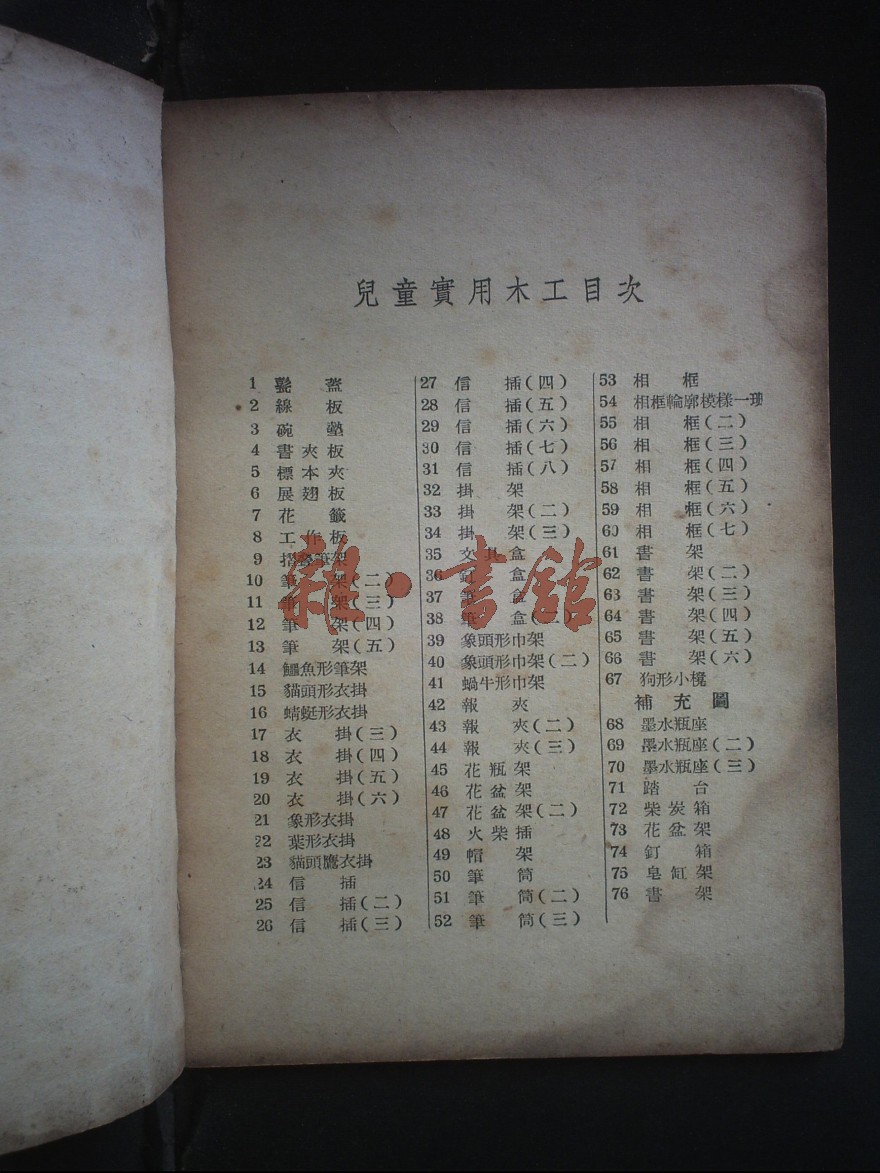 兒童實用木工目次
1 甏蓋
2 線板
3 碗墊
4 書夾板
5 標本夾
6 展翅板
7 花籤
8 工作板
9 摺疊筆架
10 筆架(二)
11 筆架(三)
12 筆架(四)
13 筆架(五)
14 鱷魚形筆架
15 貓頭形衣掛
16 蜻蜓形衣掛
17 衣掛(三)
18 衣掛(四)
19 衣掛(五)
20 衣掛(六)
21 象形衣掛
22 葉形衣掛
23 貓頭鷹衣掛
24 信插
25 信插(二)
26 信插(三)
27 信插(四)
28 信插(五)
29 信插(六)
30 信插(七)
31 信插(八)
32 掛架
33 掛架(二)
34 掛架(三)
35 文具盒
36 盒
37 筆盒
38 筆盒(二)
39 象頭形巾架
40 象頭形巾架(二)
41 蝸牛形巾架
42 報夾
43 報夾(二)
44 報夾(三)
45 花瓶架
46 花盆架
47 花盆架(二)
48 火柴插
49 帽架
50 筆筒
51 筆筒(二)
52 筆筒(三)
53 相框
54 相框輪廓模樣一班
55 相框(二)
56 相框(三)
57 相框(四)
58 相框(五)
59 相框(六)
60 相框(七)
61 書架
62 書架(二)
63 書架(三)
64 書架(四)
65 書架(五)
66 書架(六)
67 狗形小櫈
補充圖
68 墨水瓶座
69 墨水瓶座(二)
70 墨水瓶座(三)
71 踏台
72 柴炭箱
73 花盆架
74 釘箱
75 皂缸架
76 書架
雜·書館